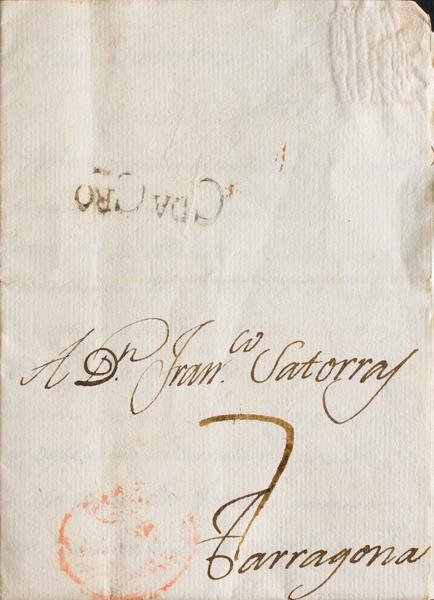 CDA CRÕ
A D.n Fran.co Satorras
7
Tarragona